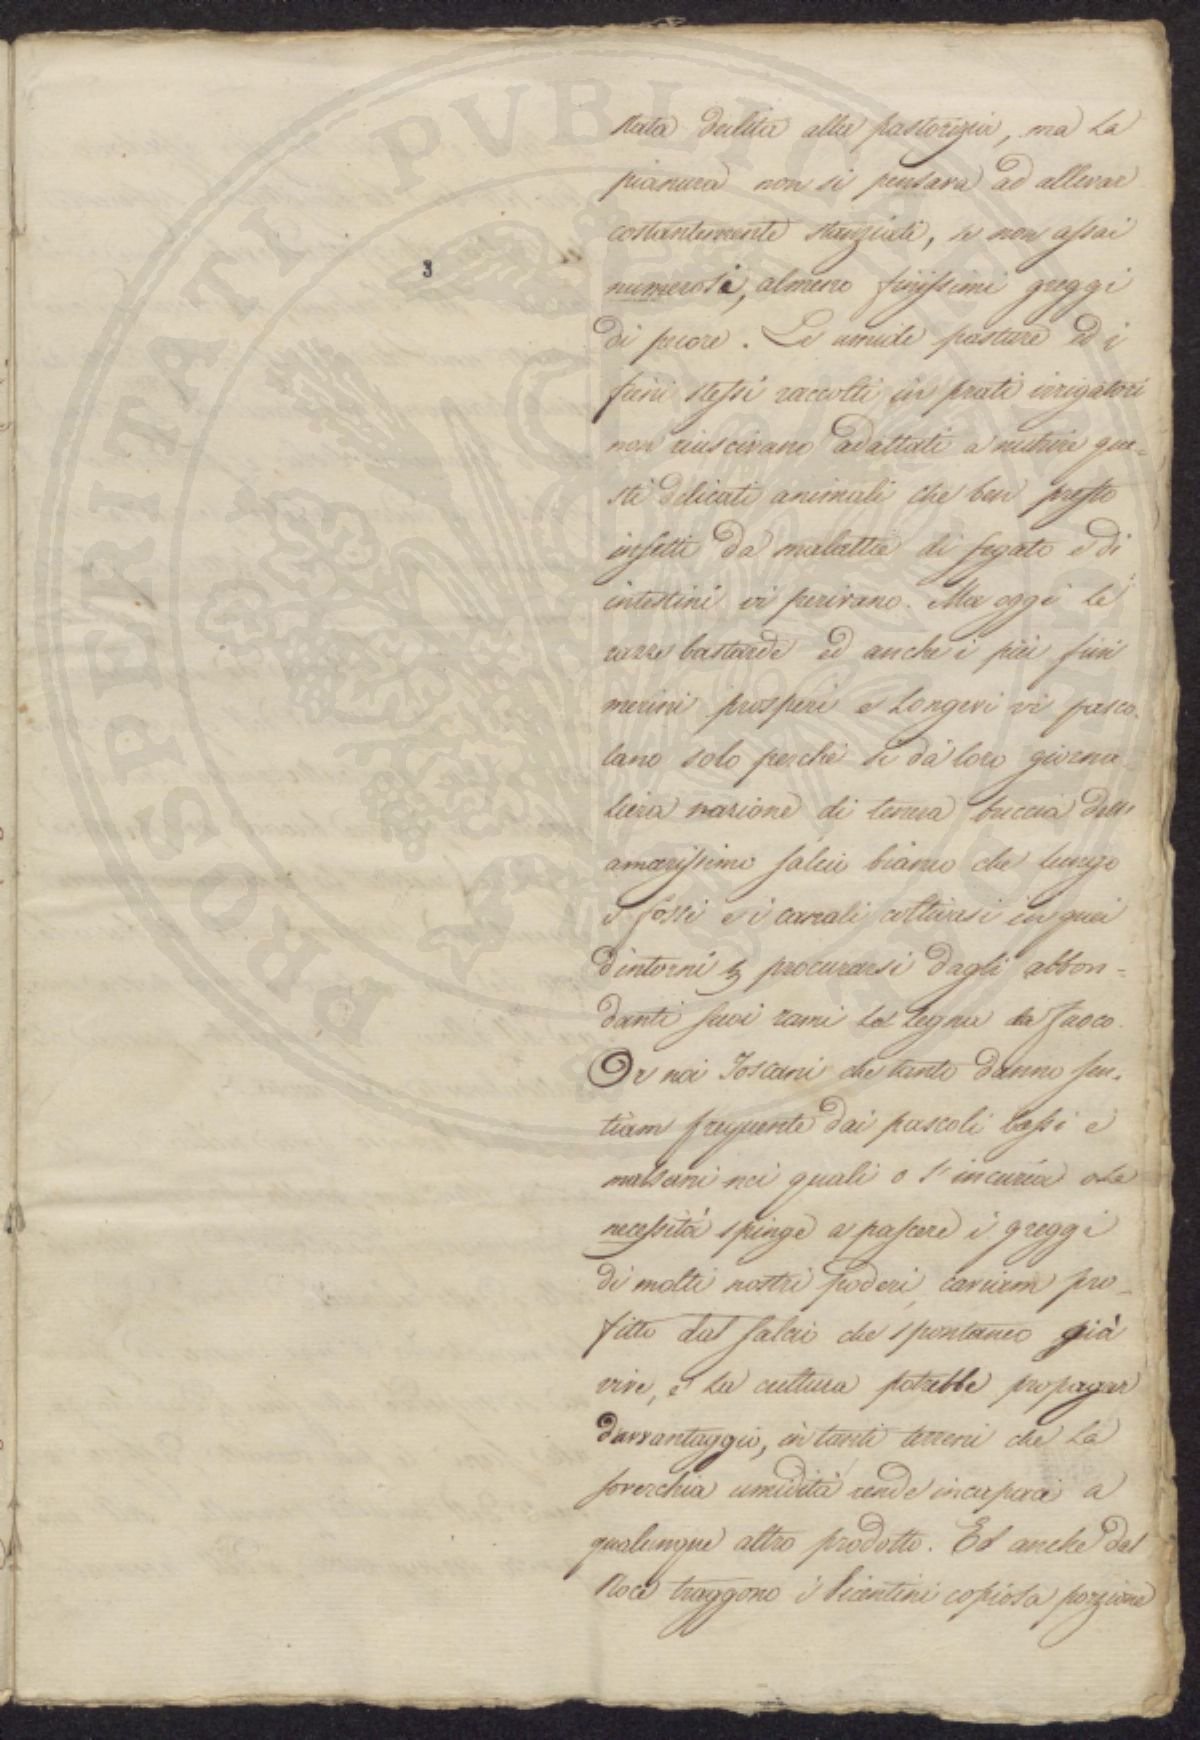 PROSPERITATI PVBLICAE
3
stata dedita alla pastorizia, ma la
pianura non si pensava ad allevar
costantemente stanziati, se non assai
numerosi, almeno finissimi greggi
di pecore. Le umide pasture ed i
fieni stessi raccolti in prati irrigatori
non riuscivano adattati a nutrire que=
sti delicati animali che ben presto
infetti da malattie di fegato e di
intestini vi perivano. Ma oggi le
razze bastarde ed anche i più fini
merini prosperi e longevi vi pasco-
lano solo perchè si dà loro giorna-
liera razione di tenera buccia dell'
amarissimo salcio bianco che lungo
i fossi e i canali coltivasi in quei
dintorni procurarsi dagli abbon=
danti suoi rami le legna da fuoco.
Or noi Toscani che tanto danno sen-
tiam frequente dai pascoli bassi e
malsani nei quali o l'incuria o la
necessità spinge a pascere i greggi
di molti nostri poderi, caviam pro-
fitto dal salcio che spontaneo già
vive, e la cultura potrebbe propagar
davvantaggio, in tanti terreni che la
soverchia umidità rende incapaci a
qualunque altro prodotto. Ed anche dal
Noce traggono i Vicentini copiosa porzione